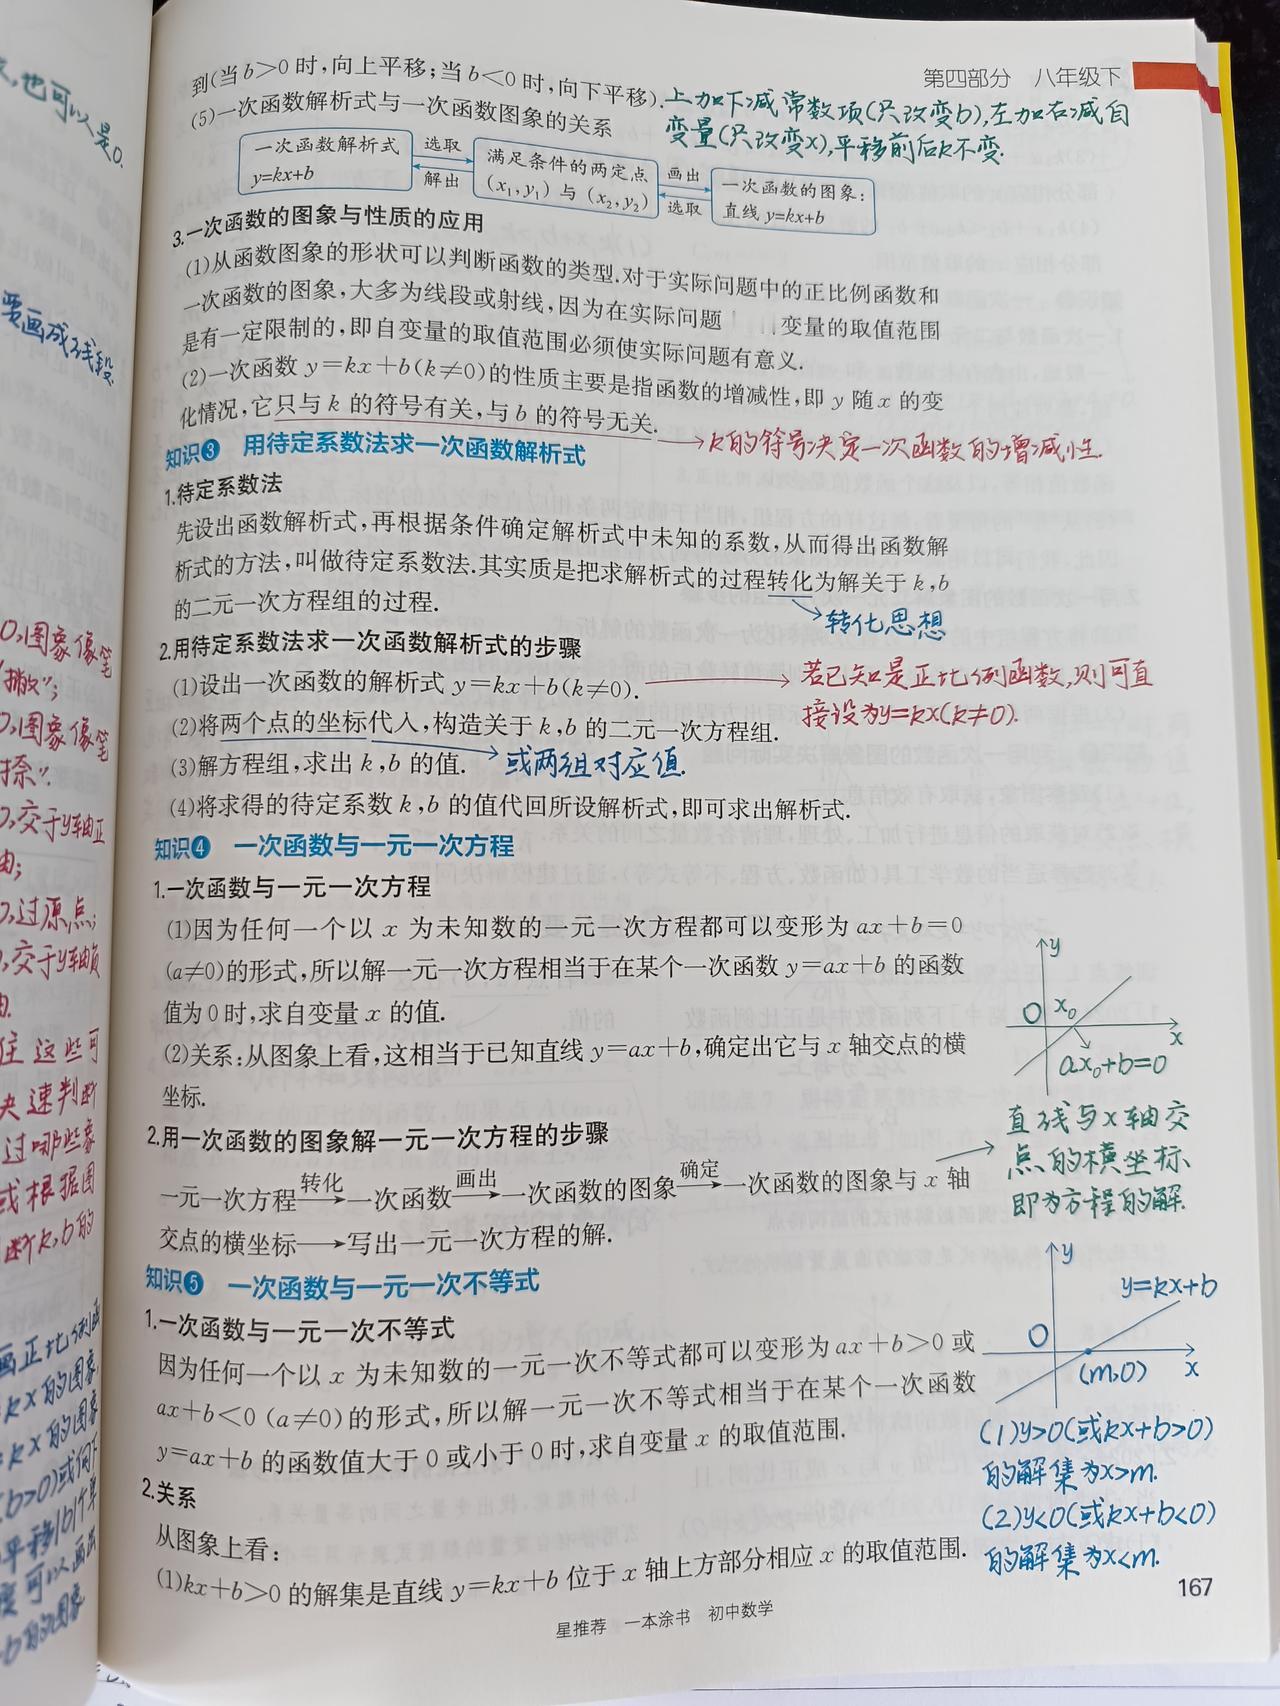 第四部分 八年级下
到(当b>0时,向上平移;当b<0时,向下平移).
上加下减常数项(只改变b),左加右减自
变量(只改变x),平移前后k不变.
(5)一次函数解析式与一次函数图象的关系
一次函数解析式
y=kx+b
选取
解出
满足条件的两定点
(x₁,y₁)与(x₂,y₂)
画出
选取
一次函数的图象:
直线y=kx+b
3.一次函数的图象与性质的应用
(1)从函数图象的形状可以判断函数的类型.对于实际问题中的正比例函数和
一次函数的图象,大多为线段或射线,因为在实际问题 变量的取值范围
是有一定限制的,即自变量的取值范围必须使实际问题有意义.
(2)一次函数y=kx+b(k≠0)的性质主要是指函数的增减性,即y随x的变
化情况,它只与k的符号有关,与b的符号无关.
→k的符号决定一次函数的增减性.
知识3 用待定系数法求一次函数解析式
1.待定系数法
先设出函数解析式,再根据条件确定解析式中未知的系数,从而得出函数解
析式的方法,叫做待定系数法.其实质是把求解析式的过程转化为解关于k,b
的二元一次方程组的过程.
→转化思想
2.用待定系数法求一次函数解析式的步骤
(1)设出一次函数的解析式y=kx+b(k≠0).
→若已知是正比例函数,则可直
接设为y=kx(k≠0).
(2)将两个点的坐标代入,构造关于k,b的二元一次方程组.
→或两组对应值.
(3)解方程组,求出k,b的值.
(4)将求得的待定系数k,b的值代回所设解析式,即可求出解析式.
知识4 一次函数与一元一次方程
1.一次函数与一元一次方程
(1)因为任何一个以x为未知数的一元一次方程都可以变形为ax+b=0
(a≠0)的形式,所以解一元一次方程相当于在某个一次函数y=ax+b的函数
值为0时,求自变量x的值.
(2)关系:从图象上看,这相当于已知直线y=ax+b,确定出它与x轴交点的横
坐标.
y
O x₀
x
ax₀+b=0
直线与x轴交
点的横坐标
即为方程的解.
2.用一次函数的图象解一元一次方程的步骤
一元一次方程 转化→ 一次函数 画出→ 一次函数的图象 确定→ 一次函数的图象与x轴
交点的横坐标→写出一元一次方程的解.
知识5 一次函数与一元一次不等式
1.一次函数与一元一次不等式
因为任何一个以x为未知数的一元一次不等式都可以变形为ax+b>0或
ax+b<0(a≠0)的形式,所以解一元一次不等式相当于在某个一次函数
y=ax+b的函数值大于0或小于0时,求自变量x的取值范围.
y
y=kx+b
O
(m,0)
x
(1)y>0(或kx+b>0)
的解集为x>m.
(2)y<0(或kx+b<0)
的解集为x<m.
2.关系
从图象上看:
(1)kx+b>0的解集是直线y=kx+b位于x轴上方部分相应x的取值范围.
167
星推荐 一本涂书 初中数学
,也可以是0.
要画成线段.
0,图象像笔
“撇”;
0,图象像笔
捺”.
0,交于y轴正
0,过原点;
0,交于y轴负
住这些可
快速判断
过哪些象
或根据图
断k,b的
画正比例函
kx的图象,
kx的图象
b>0)或向下
平移|b|个单
度可以画出
b的图象